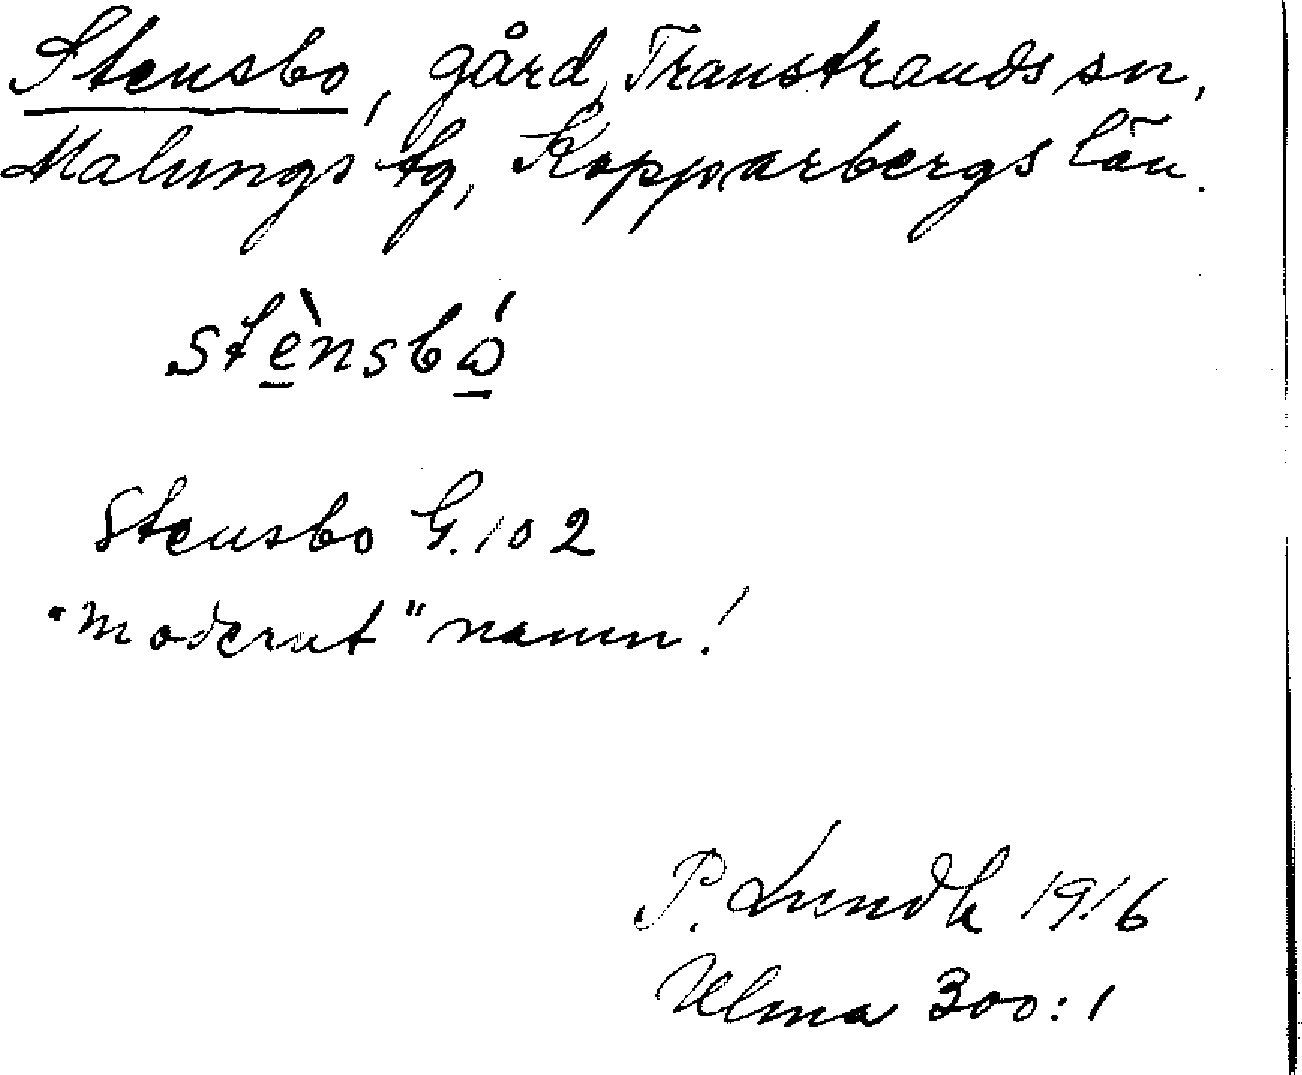 Stensbo, gård, Transtrands sn,
Malungs tg, Kopparbergs län.
stè̲nsbώ̲
Stensbo G. 102
"modernt" namn!
P. Lundh 1916
Ulma 300:1